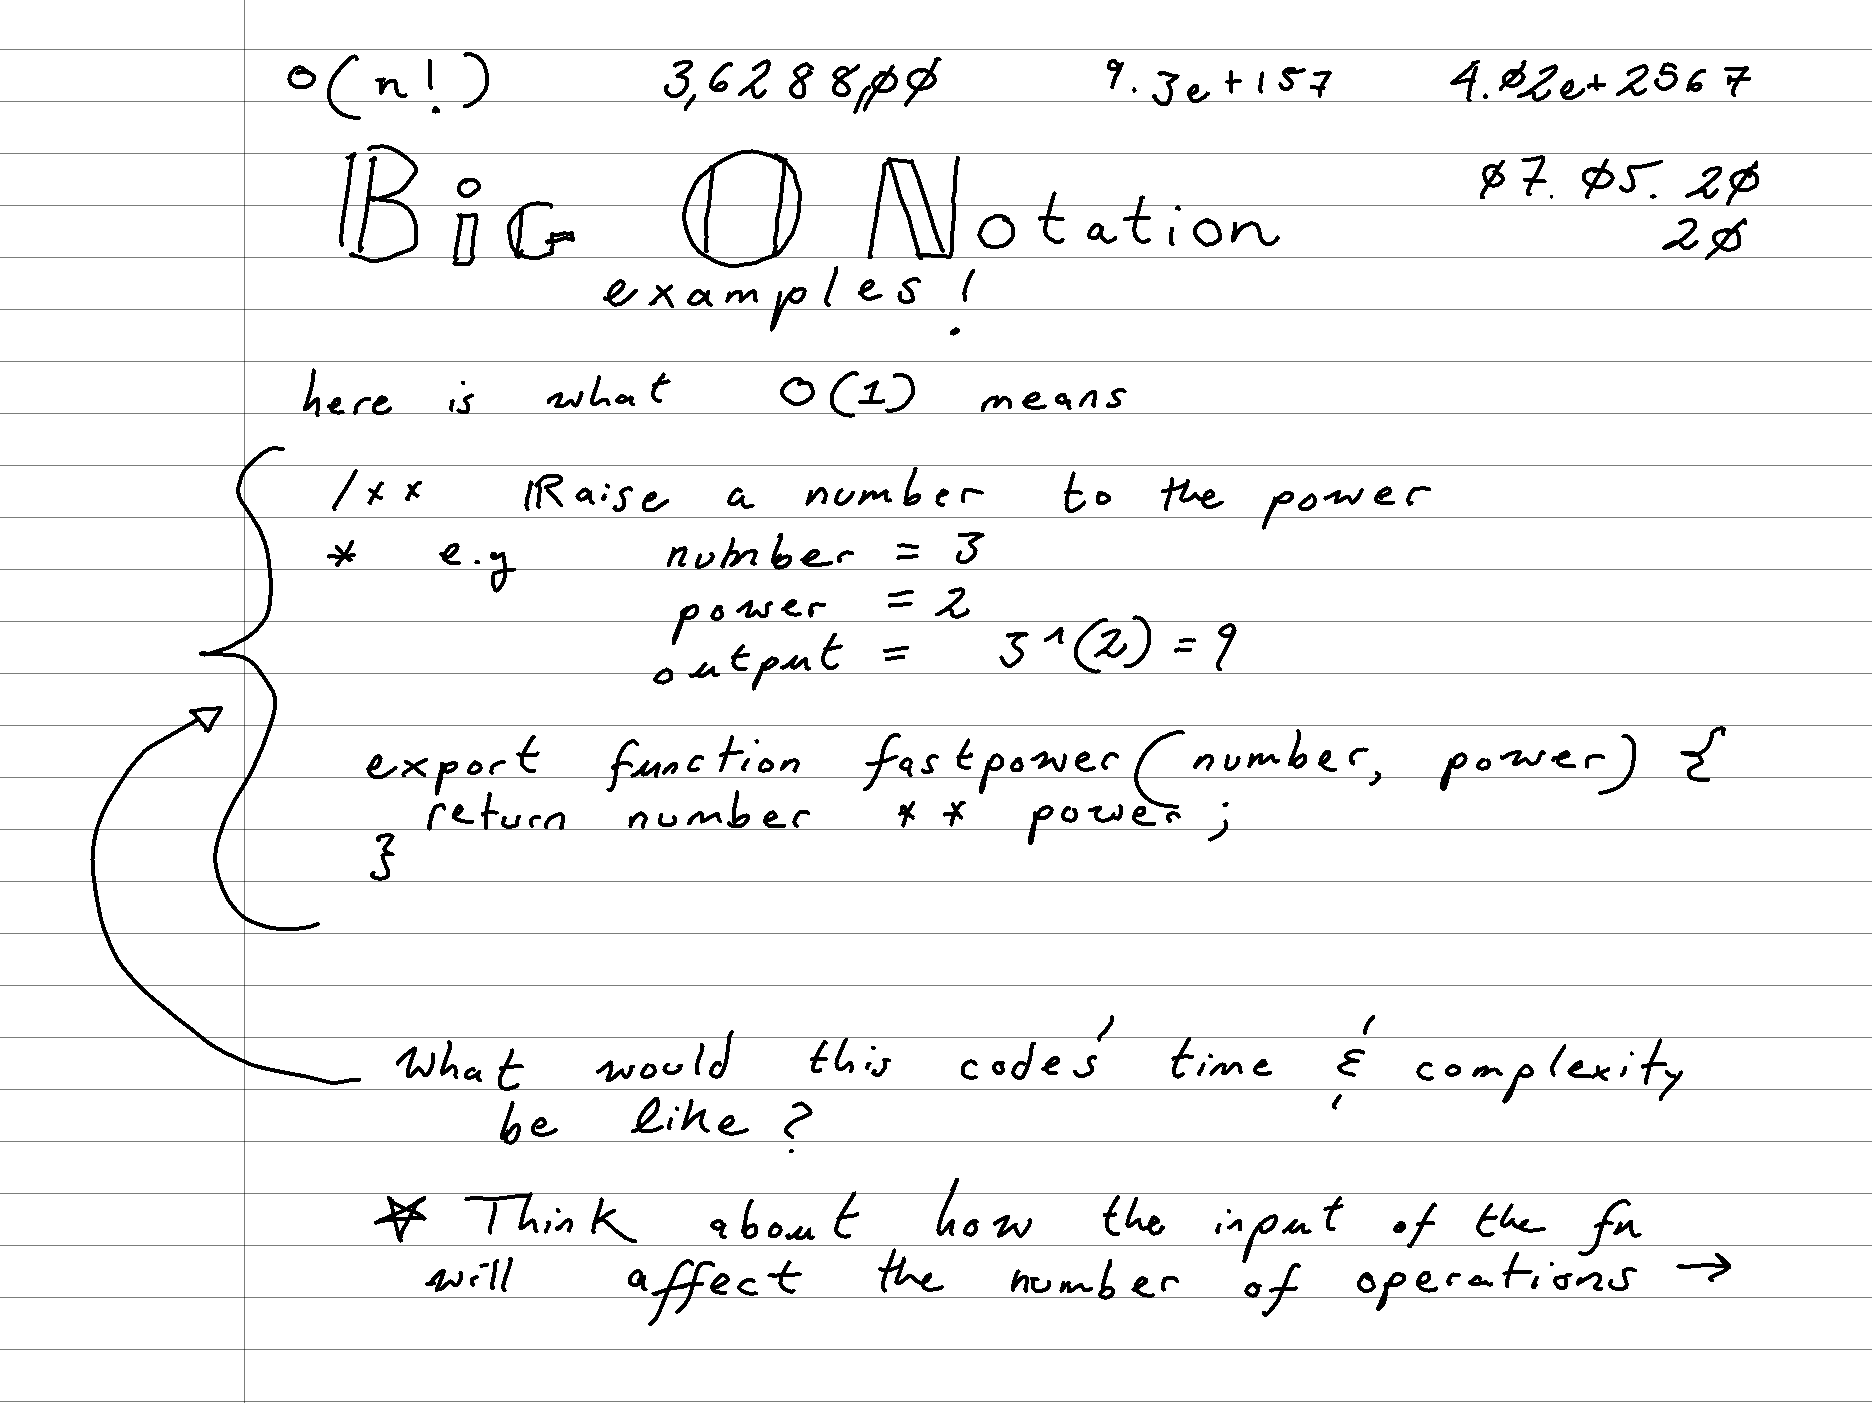 O(n!) 3,6288,00 9.3e+157 4.02e+2567
Big O Notation 07.05.20
20
examples!
here is what O(1) means
/** Raise a number to the power
* e.g number = 3
power = 2
output = 3^(2) = 9
export function fastpower(number, power) {
return number ** power;
}
What would this codes' time & complexity
be like?
☆ Think about how the input of the fn
will affect the number of operations →